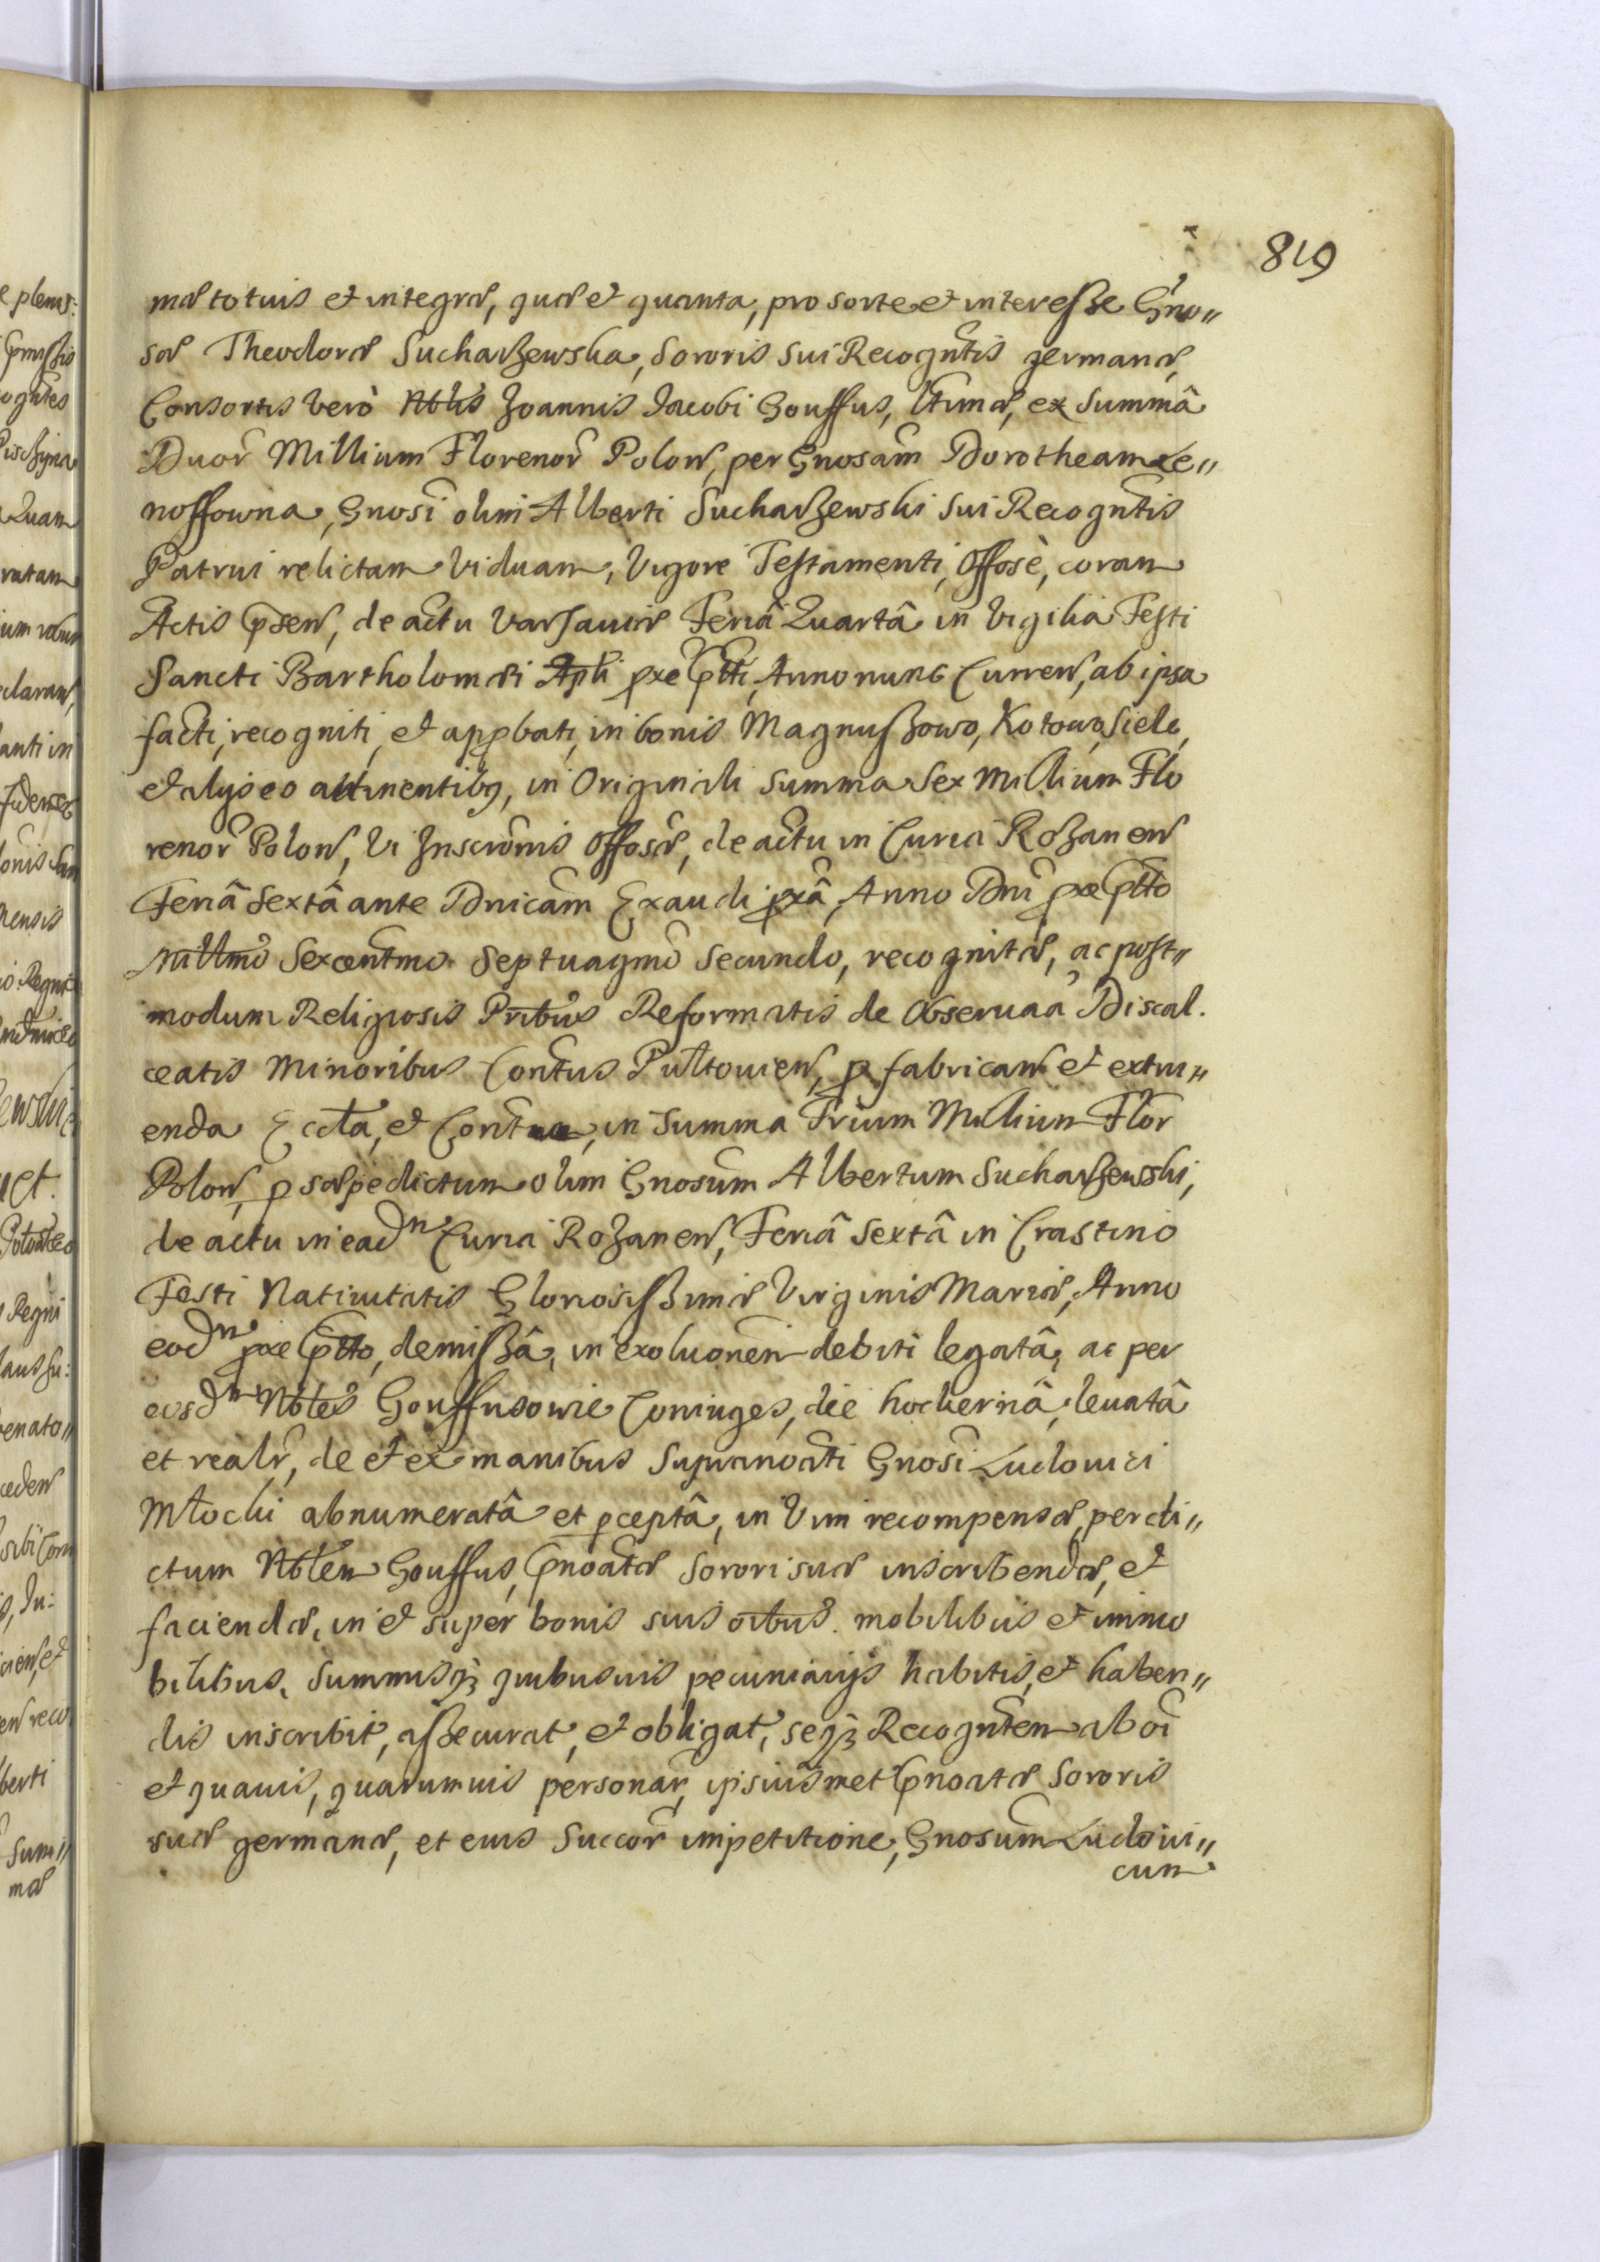 819
mæ totius et integræ, quæ et quanta, pro sorte et interesse Gno„
sæ Theodoræ Sucharzewska, Sororis sui Recogntis germanæ,
Consortis verò Nblis Joannis Jacobi Gouffus, ltimæ, ex Summâ
Duor Millium Florenor Polon, per Gnosam Dorotheam Ze„
noffowna, Gnosi olim Alberti Sucharzewski sui Recogntis
Patrui relictam Viduam, Vigore Testamenti, Offosè, coram
Actis psen, de actu Varsauiæ Feriâ Quartâ in Vigilia Festi
Sancti Bartholomæi Apli pxe ptti, Anno nunc Curren, ab ipsa
facti, recogniti, et appbati, in bonis Magnuszowo, Kotowo, Siele,
et alijs eo attinentibq, in Originali Summa Sex Millium Flo
renor Polon, Vi Inscronis Offosæ, de actu in Curia Rozanen
Feriâ Sextâ ante Dnicam Exaudi pxâ, Anno Dni pxe ptto
millmo Sexcentmo Septuagmo Secundo, recognitæ, ac post„
modum Religiosis Pribus Reformatis de Obseruaa Discal.
ceatis Minoribus Contus Pultouien, p fabricam et extru„
enda Eccla, et Contu, in Summa Trium Millium Flor
Polon, p sæpedictum olim Gnosum Albertum Sucharzewski,
de actu in eadm Curia Rozanen, Feriâ Sextâ in Crastino
Festi Natiuitatis Gloriosissimæ Virginis Mariæ, Anno
eodm pxe ptto, demissâ, in exoluonem debiti legatâ, ac per
eosdm Nbles Gouffusowie Coniuges, die hodiernâ, leuatâ
et realr, de et ex manibus Supranoati Gnosi Ludouici
Młocki abnumeratâ et pceptâ, in Vim recompensæ, per di„
ctum Nblem Gouffus, pnoatæ Sorori suæ inscribendæ, et
faciendæ, in et super bonis suis oibus mobilibus et immo
bilibus, Summisq3 quibusuis pecuniarijs habitis, et haben„
dis inscribit, assecurat, et obligat, seq3 Recogntem ab oi
et quauis, quarumuis personar, ipsiusmet pnoatæ Sororis
suæ germanæ, et eius Succor impetitione, Gnosum Ludoui„
cum